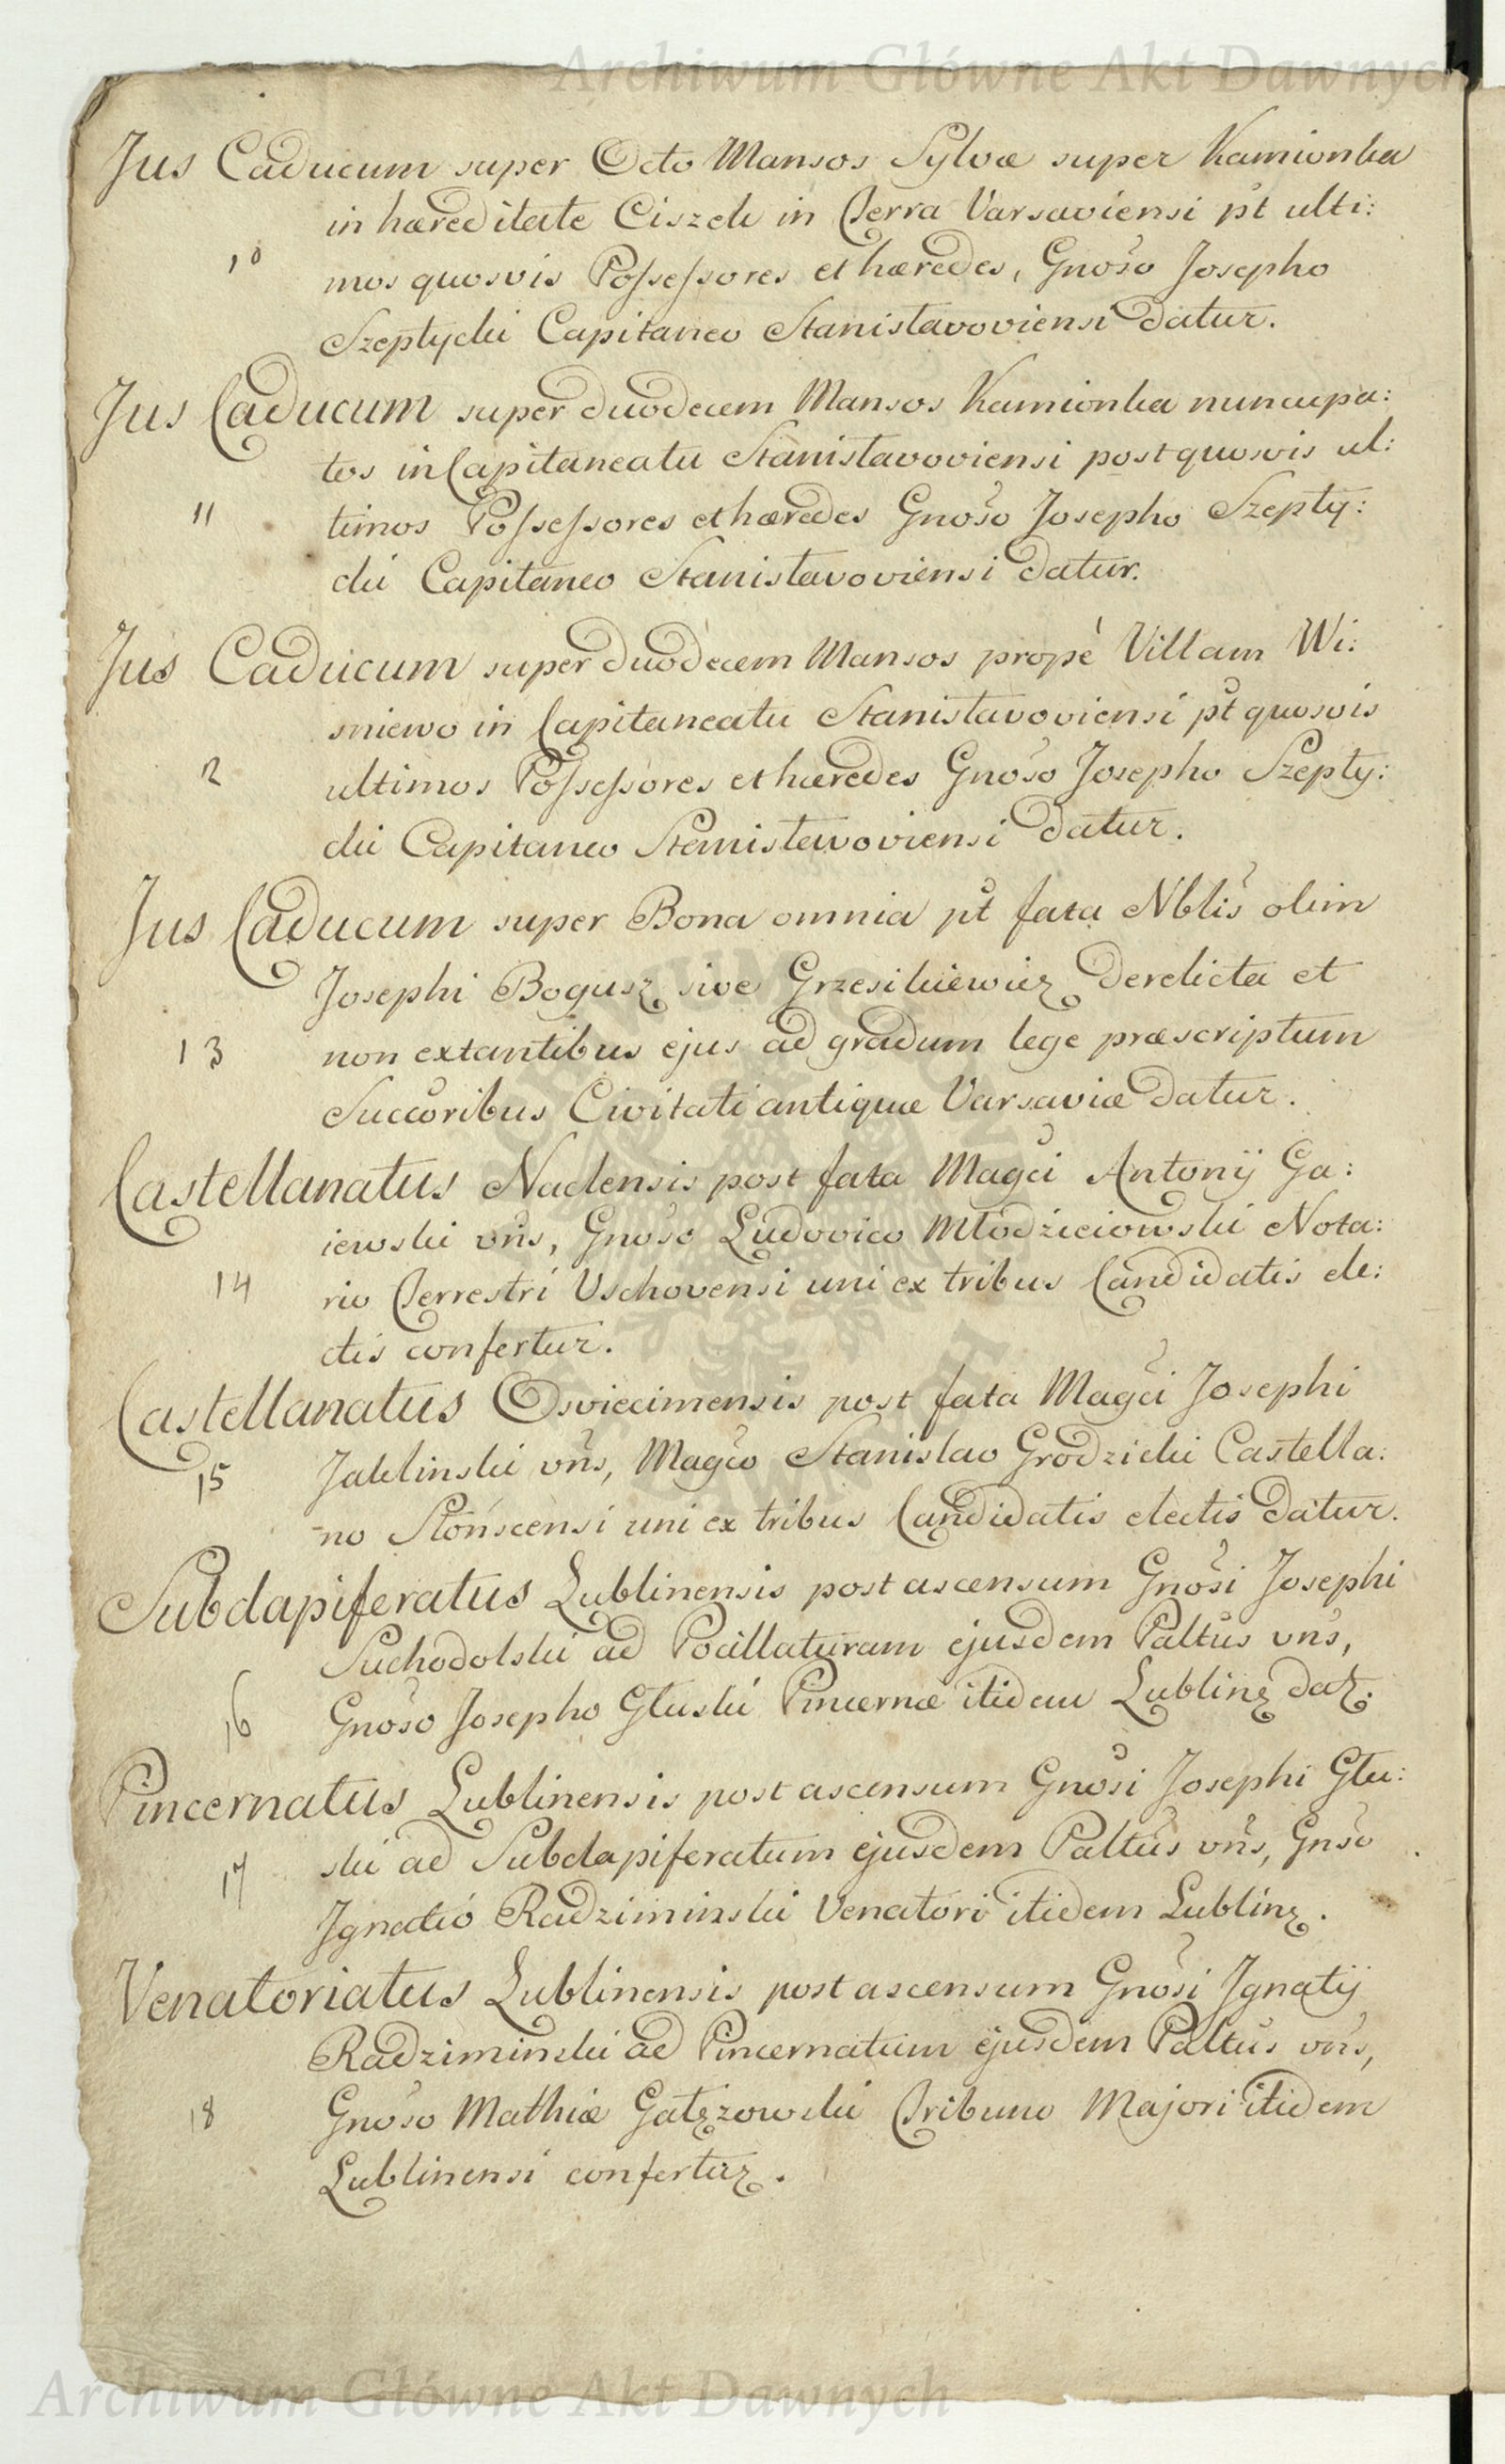 Archiwum Główne Akt Dawnych
Jus Caducum super Octo Mansos Sylvæ super Kamionka
in hæreditate Ciszek in Terra Varsaviensi pt ulti:
10 mos quosvis Possessores et hæredes, Gnoso Josepho
Szeptycki Capitaneo Stanisławoviensi datur.
Jus Caducum super duodecem Mansos Kamionka nuncupa:
tos in Capitaneatu Stanisławoviensi post quosvis ul:
11 timos Possessores et hæredes Gnoso Josepho Szepty:
cki Capitaneo Stanisławoviensi datur.
Jus Caducum super duodecem Mansos propè Villam Wi:
sniewo in Capitaneatu Stanisławoviensi pt quosvis
12 ultimos Possessores et hæredes Gnoso Josepho Szepty:
cki Capitaneo Stanisławoviensi datur.
Jus Caducum super Bona omnia pt fata Nblis olim
Josephi Bogusz sive Grzesikiewicz derelicta et
13 non extantibus ejus ad gradum lege præscriptum
Succoribus Civitati antiquæ Varsaviæ datur.
Castellanatus Naclensis post fata Magci Antonij Ga:
iewski vns, Gnoso Ludovico Młodzieiowski Nota:
14 rio Terrestri Vschovensi uni ex tribus Candidatis ele:
ctis confertur.
Castellanatus Osviecimensis post fata Magci Josephi
15 Jaklinski vns, Magco Stanislao Grodzicki Castella:
no Słonscensi uni ex tribus Candidatis electis datur.
Subdapiferatus Lublinensis post ascensum Gnosi Josephi
Suchodolski ad Pocillaturam ejusdem Paltus vns,
16 Gnoso Josepho Głuski Pincernæ itidem Lublinz datz.
Pincernatus Lublinensis post ascensum Gnosi Josephi Głu:
ski ad Subdapiferatum ejusdem Paltus vns, Gnso
17 Jgnatio Radziminski Venatori itidem Lublinz.
Venatoriatus Lublinensis post ascensum Gnosi Jgnatij
Radziminski ad Pincernatum ejusdem Paltus vns,
18 Gnoso Mathiæ Gałęzowski Tribuno Majori itidem
Lublinensi confertuz.
Archiwum Główne Akt Dawnych